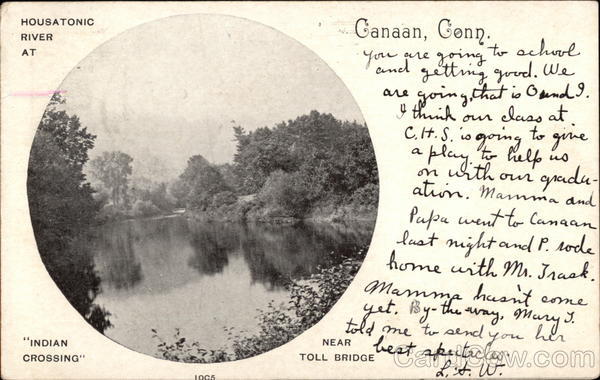 HOUSATONIC
RIVER
AT
Canaan, Conn.
you are going to school
and getting good. We
are going, that is O and I.
I think our class at
C.H.S. is going to give
a play. to help us
on with our gradu-
ation. Mamma and
Papa went to Canaan
last night and P. rode
home with Mr. Trask.
Mamma hasn't come
yet. By-the-way, Mary J.
told me to send you her
best spectacles.
L. A. W.
"INDIAN
CROSSING"
NEAR
TOLL BRIDGE
1005
CardCow.com